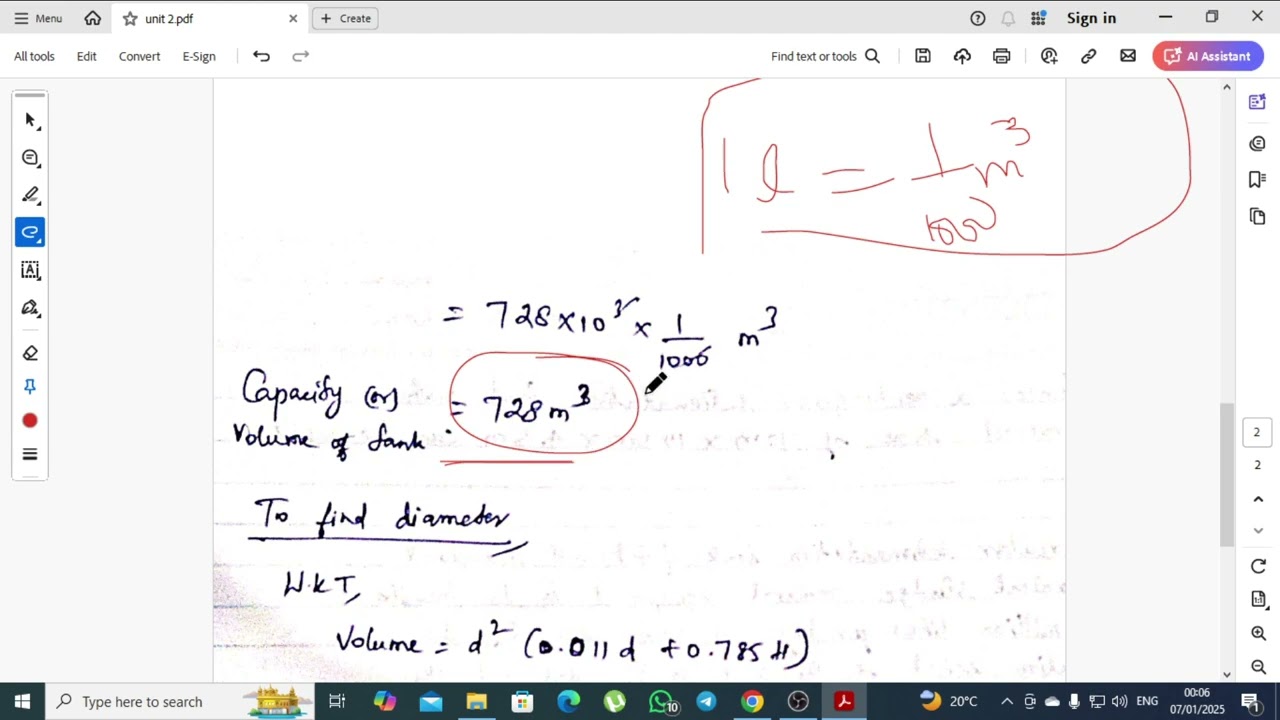 Menu
unit 2.pdf
Create
Sign in
All tools
Edit
Convert
E-Sign
Find text or tools
AI Assistant
1 l = 1/1000 m³
= 728 × 10³ × 1/1000 m³
Capacity (or) = 728 m³
Volume of tank
To find diameter
W.K.T,
Volume = d² (0.011d + 0.785H)
2
2
Type here to search
10
20°C
ENG
00:06
07/01/2025
1